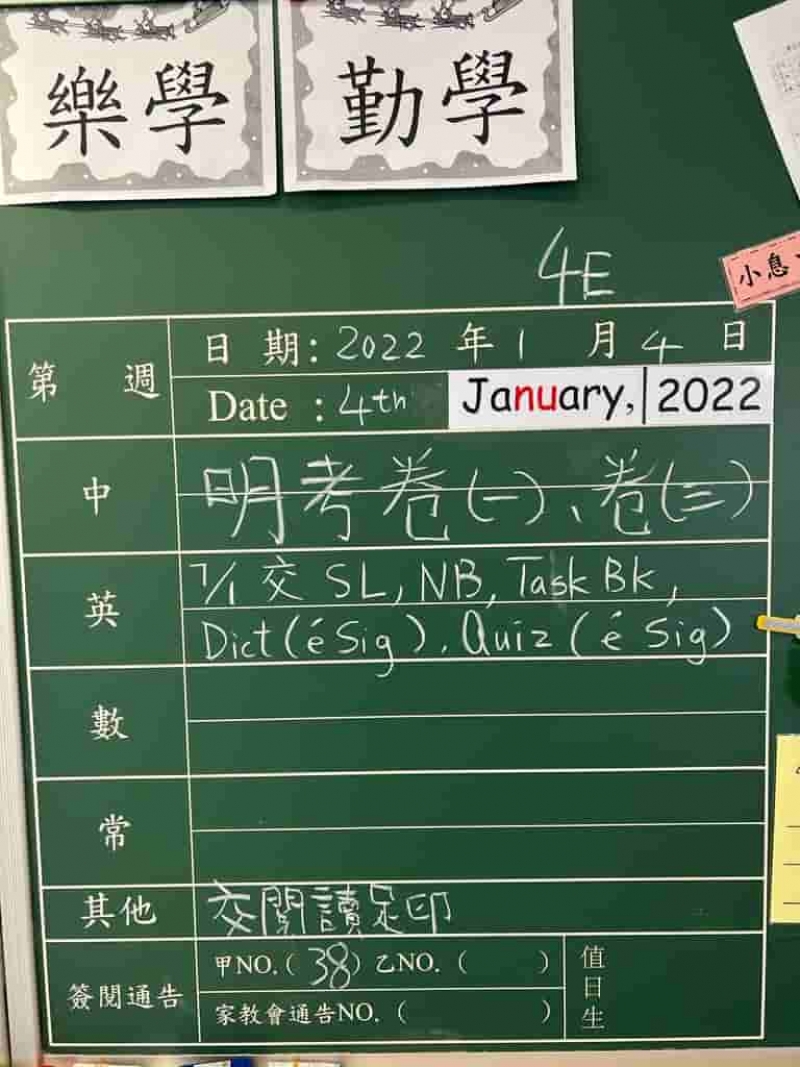 樂學
勤學
4E
小息
第 週
日 期：2022 年 1 月 4 日
Date : 4th January, 2022
中
明考卷(一)、卷(三)
英
7/1 交 SL, NB, Task Bk,
Dict (é Sig), Quiz (é Sig)
數
常
其他
交閱讀足印
簽閱通告
甲NO.( 38 ) 乙NO. ( )
家教會通告NO. ( )
值日生